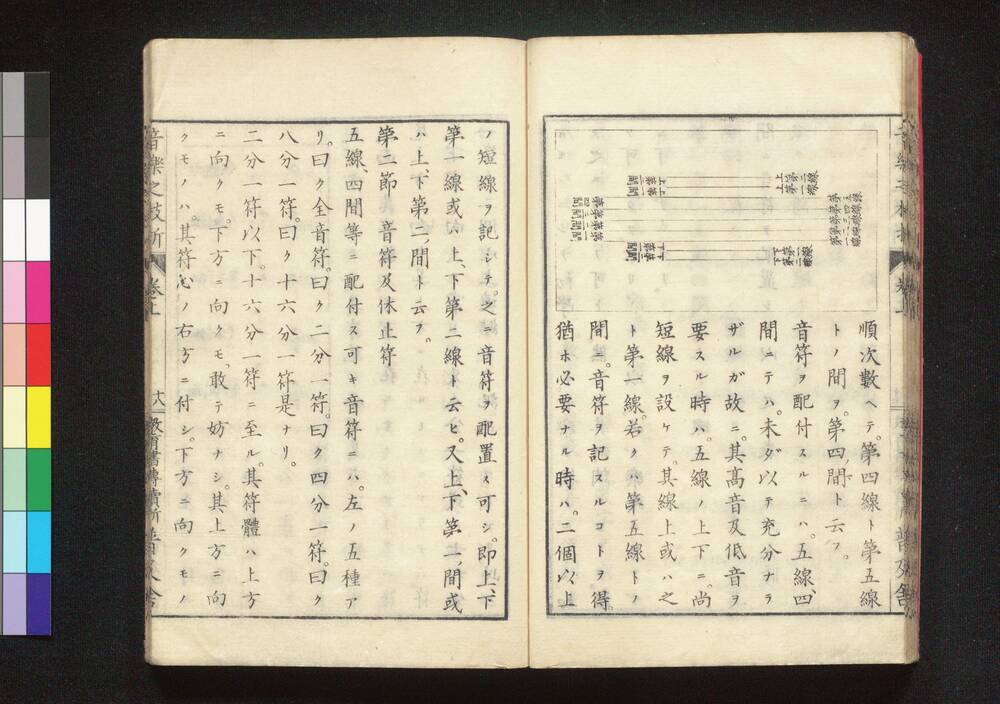 順次數ヘテ。第四線ト第五線
トノ間ヲ。第四間ト云フ。
音符ヲ配付スルニハ。五線、四
間ニテハ。未ダ以テ充分ナラ
ザルガ故ニ。其高音及低音ヲ
要スル時ハ。五線ノ上下ニ。尚
短線ヲ設ケテ。其線上或ハ之
ト第一線。若クハ第五線トノ
間ニ。音符ヲ記スルコトヲ得
猶ホ必要ナル時ハ。二個以上
ノ短線ヲ記シテ。之ニ音符ヲ配置ス可シ。即上、下
第一線或ハ上、下第二線ト云ヒ。又上、下第一、間或
ハ上、下第二、間ト云フ。
第二節 音符及休止符
五線、四間等ニ配付ス可キ音符ニハ。左ノ五種ア
リ。曰ク全音符。曰ク二分一符。曰ク四分一符。曰ク
八分一符。曰ク十六分一符是ナリ。
二分一符以下。十六分一符ニ至ル。其符體ハ上方
ニ向クモ。下方ニ向クモ、敢テ妨ナシ。其上方ニ向
クモノハ。其符心ノ右方ニ付シ。下方ニ向クモノ
音樂之枝折 卷上 十八 教育書專賣所 普及舍